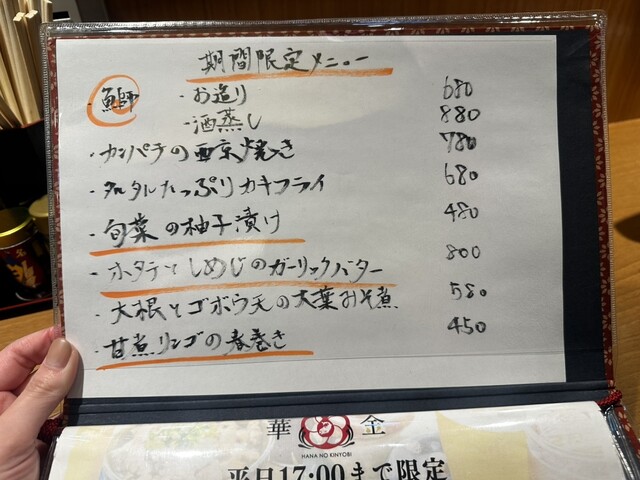 期間限定メニュー
・鰤師 ・お造り 680
・酒蒸し 880
・カンパチの西京焼き 780
・タルタルたっぷりカキフライ 680
・旬菜の柚子漬け 480
・ホタテとしめじのガーリックバター 800
・大根とゴボウ天の大葉みそ煮 580
・甘煮リンゴの春巻き 450
華 金
HANA NO KINYOBI
平日17:00まで限定